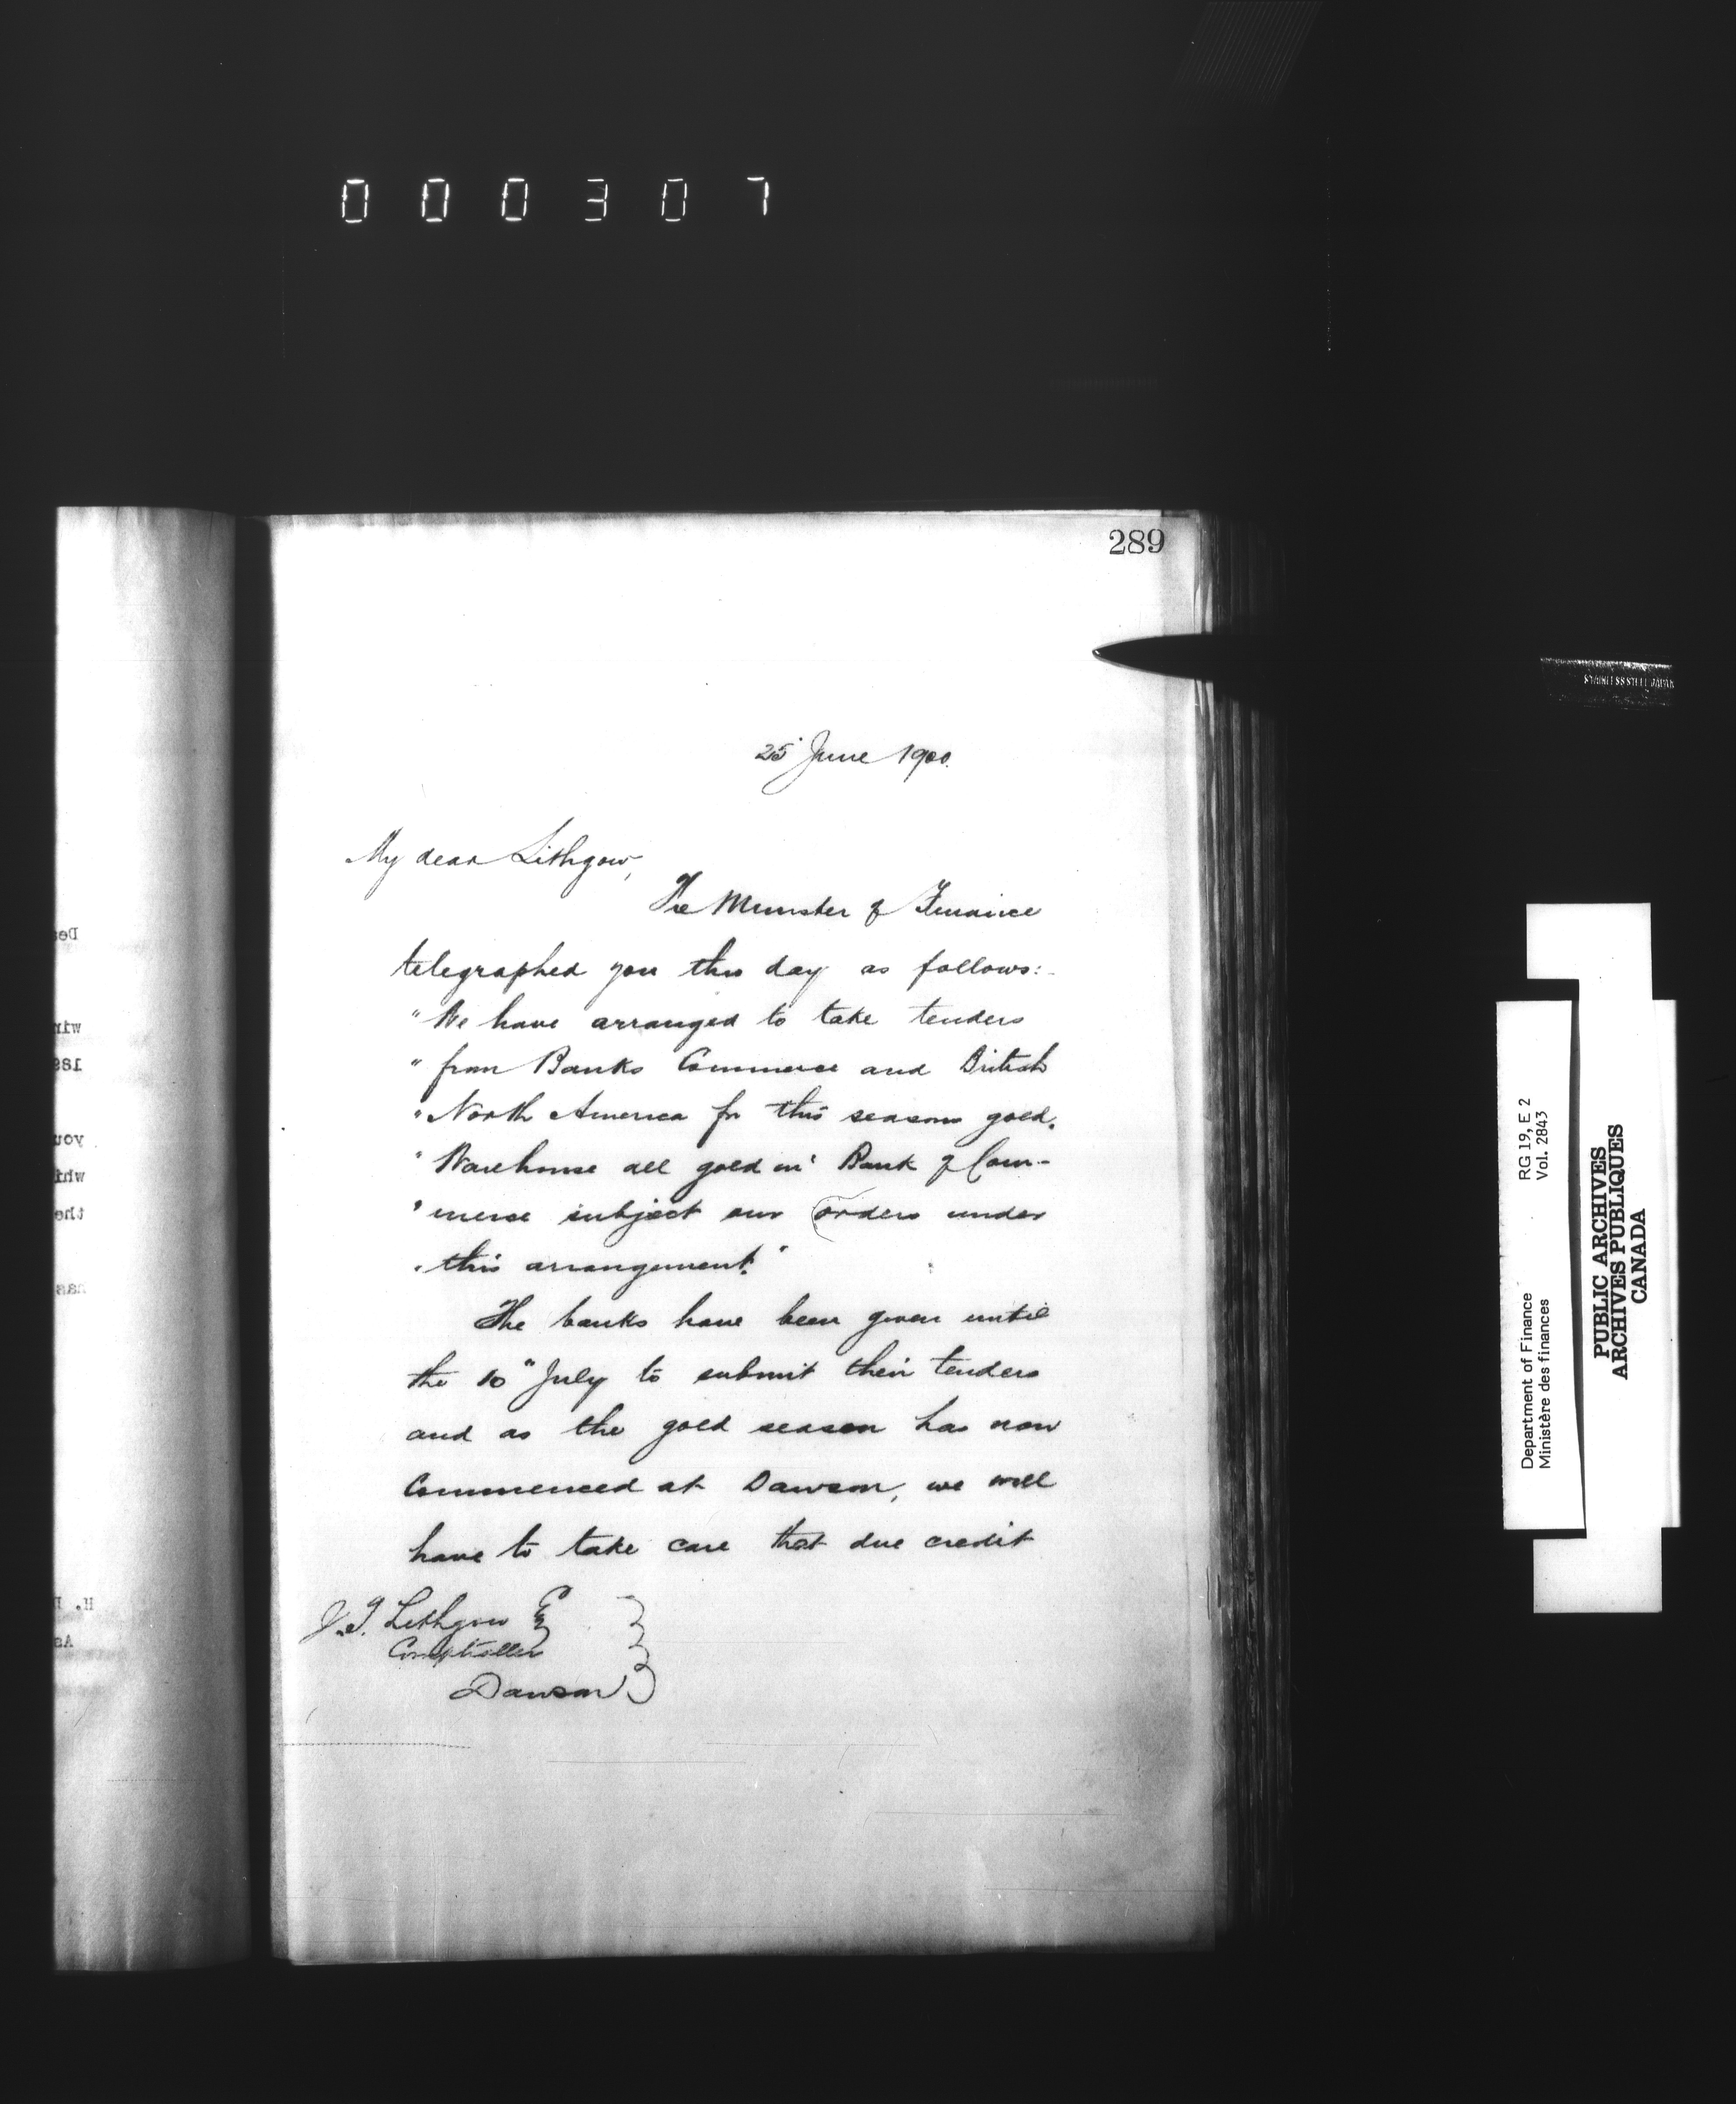 000307
289
25 June 1900.
My dear Lithgow,
The Minister of Finance
telegraphed you this day as follows:-
"We have arranged to take tenders
" from Banks Commerce and British
" North America for this seasons gold.
" Warehouse all gold in Bank of Com-
" merce subject our orders under
" this arrangement."
The banks have been given until
the 10" July to submit their tenders
and as the gold season has now
commenced at Dawson, we will
have to take care that due credit
J.T. Lithgow Esq
Comptroller
Dawson
Department of Finance RG 19, E 2
Ministère des finances Vol. 2843
PUBLIC ARCHIVES
ARCHIVES PUBLIQUES
CANADA